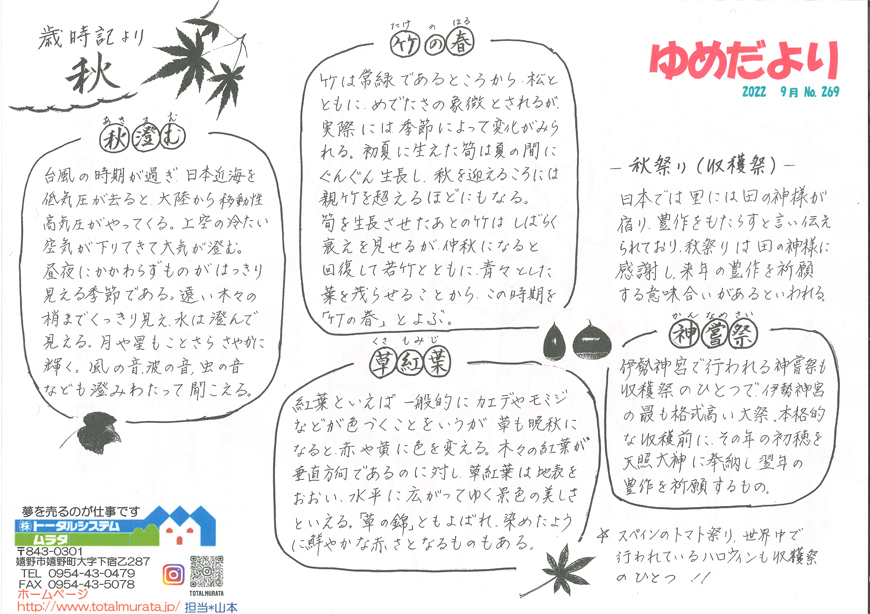 ゆめだより
2022 9月 No. 269
歳時記より
秋
あき す む
秋澄む
台風の時期が過ぎ、日本近海を
低気圧が去ると、大陸から移動性
高気圧がやってくる。上空の冷たい
空気が下りてきて大気が澄む。
昼夜にかかわらずものがはっきり
見える季節である。遠い木々の
梢までくっきり見え、水は澄んで
見える。月や星もことさらさやかに
輝く。風の音、波の音、虫の音
なども澄みわたって聞こえる。
たけ の はる
竹の春
竹は常緑であるところから、松と
ともに、めでたさの象徴とされるが
実際には季節によって変化がみら
れる。初夏に生えた筍は夏の間に
ぐんぐん生長し、秋を迎えるころには
親竹を超えるほどにもなる。
筍を生長させたあとの竹は しばらく
衰えを見せるが、仲秋になると
回復して若竹とともに、青々とした
葉を茂らせることから、この時期を
「竹の春」とよぶ。
くさ もみじ
草紅葉
紅葉といえば 一般的にカエデやモミジ
などが色づくことをいうが 草も晩秋に
なると、赤や黄に色を変える。木々の紅葉が
垂直方向であるのに対し、草紅葉は地表を
おおい、水平に広がってゆく景色の美しさ
といえる。「草の錦」ともよばれ、染めたよう
に鮮やかな赤さとなるものもある。
－秋祭り(収穫祭)－
日本では里には田の神様が
宿り、豊作をもたらすと言い伝え
られており、秋祭りは田の神様に
感謝し、来年の豊作を祈願
する意味合いがあるといわれる。
かん なめ さい
神嘗祭
伊勢神宮で行われる神嘗祭も
収穫祭のひとつで、伊勢神宮
の最も格式高い大祭。本格的
な収穫前に、その年の初穂を
天照大神に奉納し翌年の
豊作を祈願するもの。
☆ スペインのトマト祭り、世界中で
行われているハロウィンも収穫祭
のひとつ !!
夢を売るのが仕事です
㈱トータルシステム
ムラタ
〒843-0301
嬉野市嬉野町大字下宿乙287
TEL 0954-43-0479
FAX 0954-43-5078
ホームページ
http://www.totalmurata.jp/ 担当*山本
TOTALMURATA